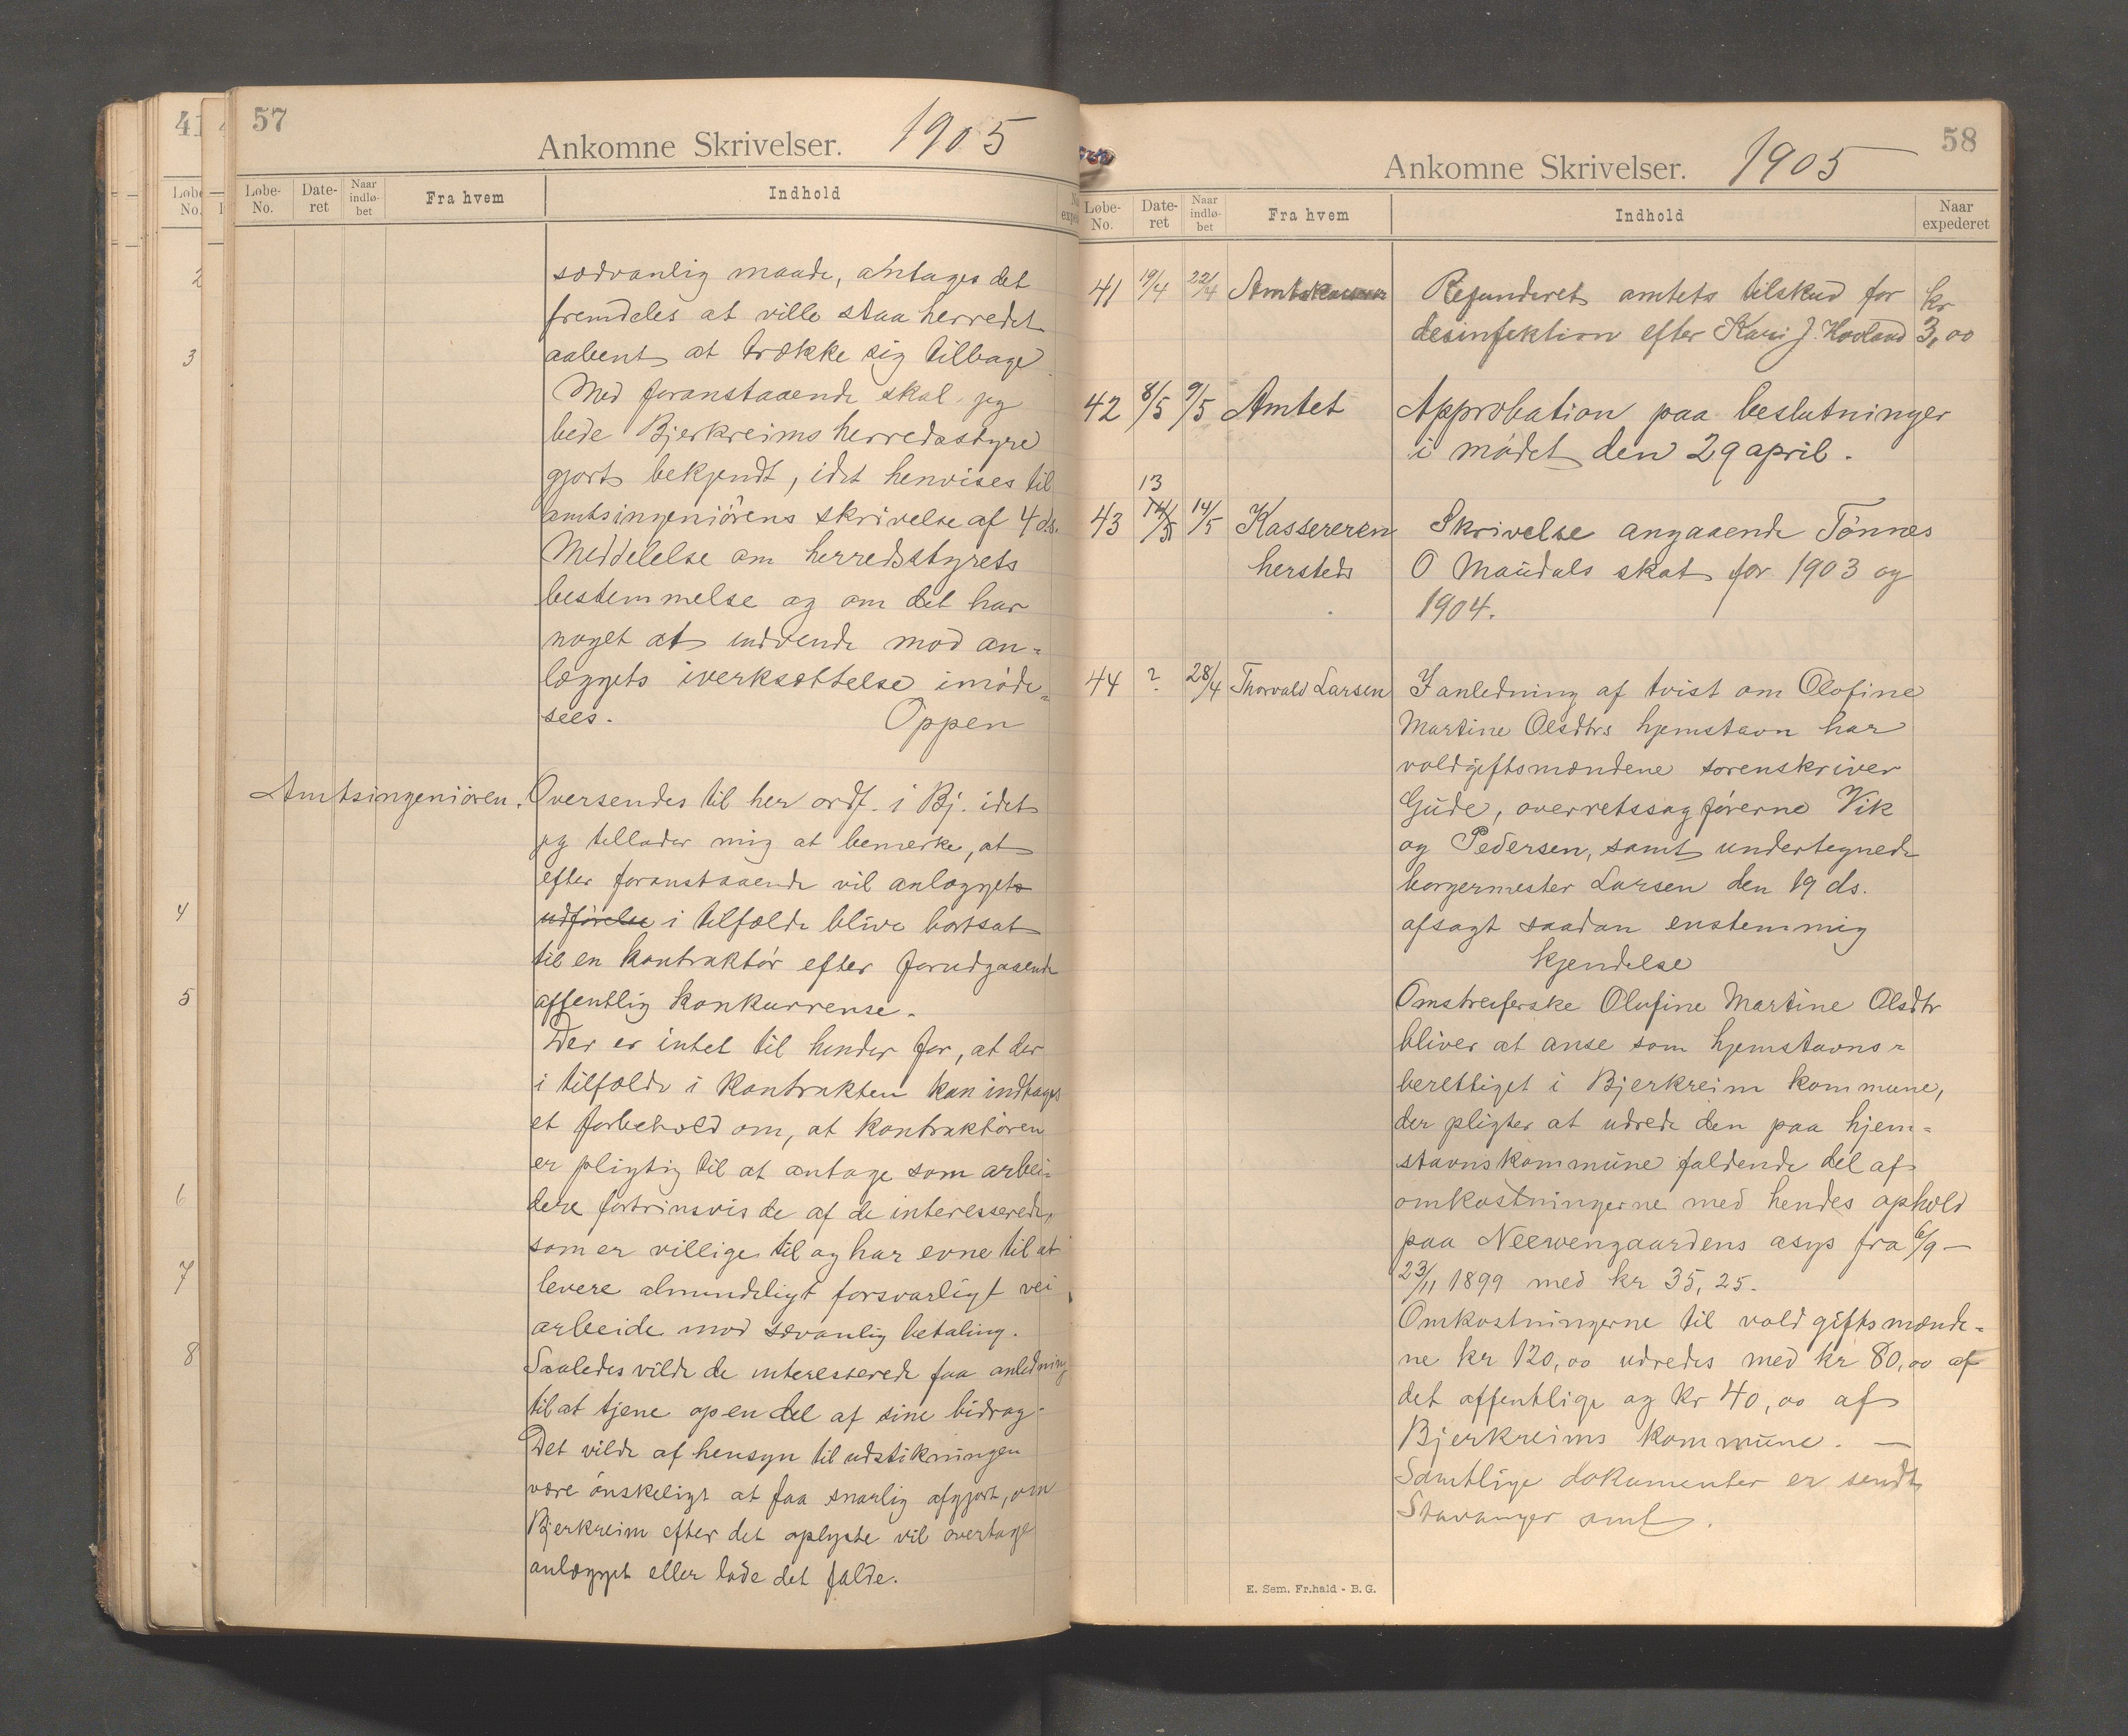 57
Ankomne Skrivelser. 1905
Løbe-No. Date-ret Naar indlø-bet Fra hvem Indhold
sædvanlig maade, antages det
fremdeles at ville staa herredet
aabent at trække sig tilbage.
Med foranstaaende skal jeg
bede Bjerkreims herredsstyre
gjort bekjendt, idet henvises til
amtsingeniörens skrivelse af 4 ds.
Meddelelse om herredsstyrets
bestemmelse og om det har
noget at indvende mod an-
læggets iverksættelse imøde-
sees. Oppen
Amtsingeniören. Oversendes til her ordf. i Bj. idet
jeg tillader mig at bemerke, at
efter foranstaaende vil anlægget
udførelse i tilfælde blive bortsat
til en kontraktør efter forudgaaende
offentlig konkurrense.
Der er intet til hinder for, at der
i tilfælde i kontrakten kan indtages
et forbehold om, at kontraktøren
er pligtig til at antage som arbei-
dere fortrinsvis de af de interesserede,
som er villige til og har evne til at
levere almindeligt forsvarligt vei
arbeide mod sævanlig betaling.
Saaledes vilde de interesserede faa anledning
til at tjene op en del af sine bidrag.
Det vilde af hensyn til udstikningen
være ønskeligt at faa snarlig afgjort, om
Bjerkreim efter det oplyste vil overtage
anlægget eller lade det falde.
58
Ankomne Skrivelser. 1905
Løbe-No. Date-ret Naar indlø-bet Fra hvem Indhold Naar expederet
41 19/4 22/4 Amtskassen Refunderet amtets tilskud for kr
desinfektion efter Kari J. Hovland 3,00
42 8/5 9/5 Amtet Approbation paa beslutninger
i mødet den 29 april.
13
43 14/5 14/5 Kassereren Skrivelse angaaende Tønnes
hersteds O Maudals skat for 1903 og
1904.
44 ? 28/4 Thorvald Larsen I anledning af tvist om Olofine
Martine Olsdtrs hjemstavn har
voldgiftsmændene sorenskriver
Gude, overretssagførerne Vik
og Pedersen, samt undertegnede
borgermester Larsen den 19 ds.
afsagt saadan enstemmig
kjendelse
Omstreiferske Olufine Martine Olsdtr
bliver at anse som hjemstavns-
berettiget i Bjerkreim kommune,
der pligter at udrede den paa hjem-
stavnskommune faldende del af
omkostningerne med hendes ophold
paa Neewengaardens asys fra 6/9 -
23/11 1899 med kr 35,25.
Omkostningerne til voldgiftsmænde-
ne kr 120,00 udredes med kr 80,00 af
det offentlige og kr 40,00 af
Bjerkreims kommune. -
Samtlige dokumenter er sendt
Stavanger amt.
E. Sem. Fr.hald - B. G.